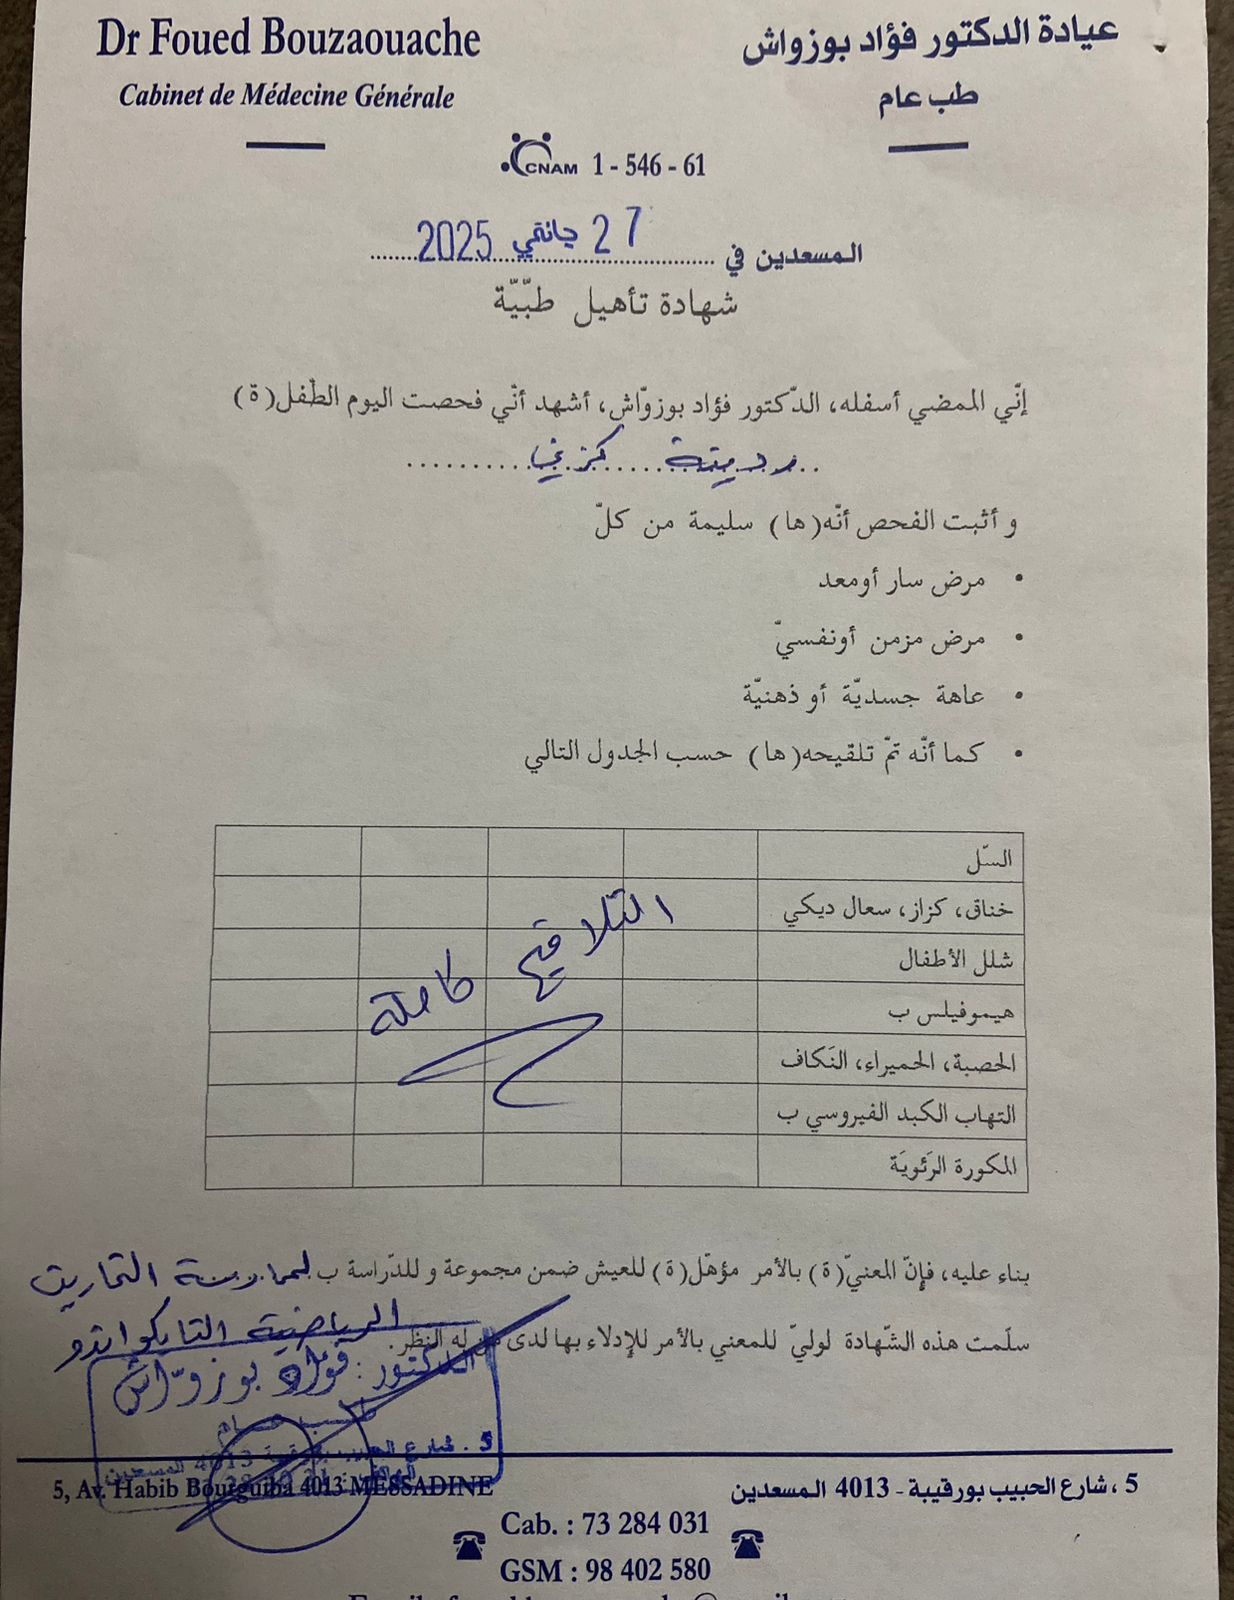 Dr Foued Bouzaouache
Cabinet de Médecine Générale
عيادة الدكتور فؤاد بوزواش
طب عام
CNAM 1 - 546 - 61
المسعدين في 27 جانفي 2025
شهادة تأهيل طبّيّة
إنّي الممضي أسفله، الدّكتور فؤاد بوزوّاش، أشهد أنّي فحصت اليوم الطّفل(ة)
و أثبت الفحص أنّه(ها) سليمة من كلّ
• مرض سار أومعد
• مرض مزمن أونفسيّ
• عاهة جسديّة أو ذهنيّة
• كما أنّه تمّ تلقيحه(ها) حسب الجدول التالي
السّل
خناق، كزاز، سعال ديكي
شلل الأطفال
هيموفيلس ب
الحصبة، الحميراء، النَكاف
التهاب الكبد الفيروسي ب
المكورة الرَئويَة
التلاقيح كاملة
بناء عليه، فإنّ المعنيّ(ة) بالأمر مؤهّل(ة) للعيش ضمن مجموعة و للدّراسة ب لممارسة التمارين
الرياضية التايكواندو
سلّمت هذه الشّهادة لوليّ للمعني بالأمر للإدلاء بها لدى من له النظر.
الدكتور: فؤاد بوزوّاش
طب عام
5، شارع الحبيب بورقيبة 4013 المسعدين
5, Av. Habib Bourguiba 4013 MESSADINE
5 ، شارع الحبيب بورقيبة - 4013 المسعدين
Cab. : 73 284 031
GSM : 98 402 580